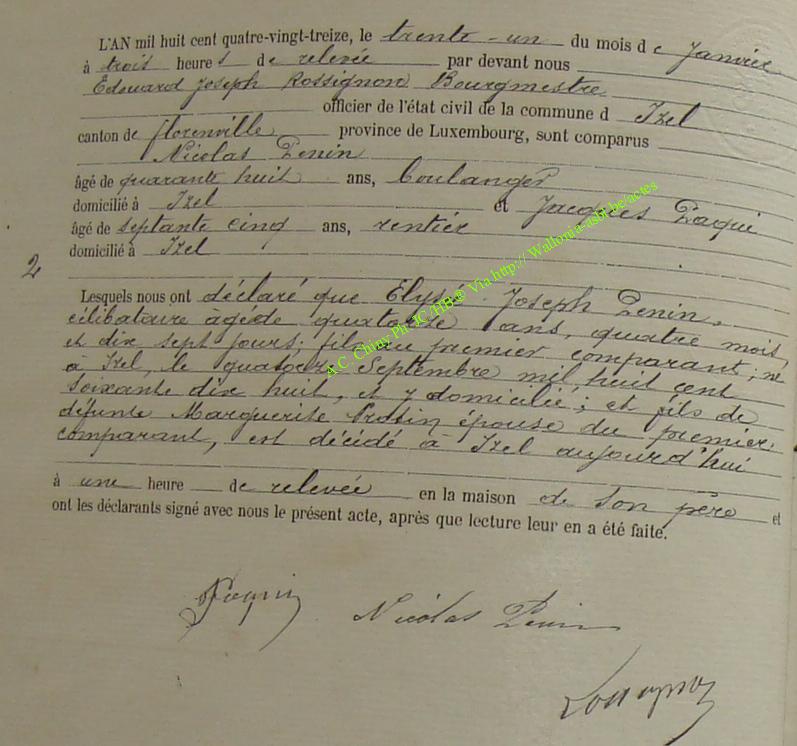 L'AN mil huit cent quatre-vingt-treize, le trente-un du mois de Janvier
à trois heures de relevée par devant nous
Edouard Joseph Rossignon Bourgmestre
officier de l'état civil de la commune d Izel
canton de florenville province de Luxembourg, sont comparus
Nicolas Penin
âgé de quarante huit ans, boulanger
domicilié à Izel et Jacques Paqui
âgé de septante cinq ans, rentier
domicilié à Izel
2
Lesquels nous ont déclaré que Elysé Joseph Penin,
célibataire âgé de quatorze ans, quatre mois,
et dix sept jours; fils du premier comparant; né
à Izel, le quatorze Septembre mil huit cent
soixante dix huit, et y domicilié; et fils de
défunte Marguerite épouse du premier
comparant, est décédé à Izel aujourd'hui
à une heure de relevée en la maison de son père et
ont les déclarants signé avec nous le présent acte, après que lecture leur en a été faite.
A.C. Chiny Ph JC/HB® Via http:// Wallonia-asbl.be/actes
Nicolas Penin